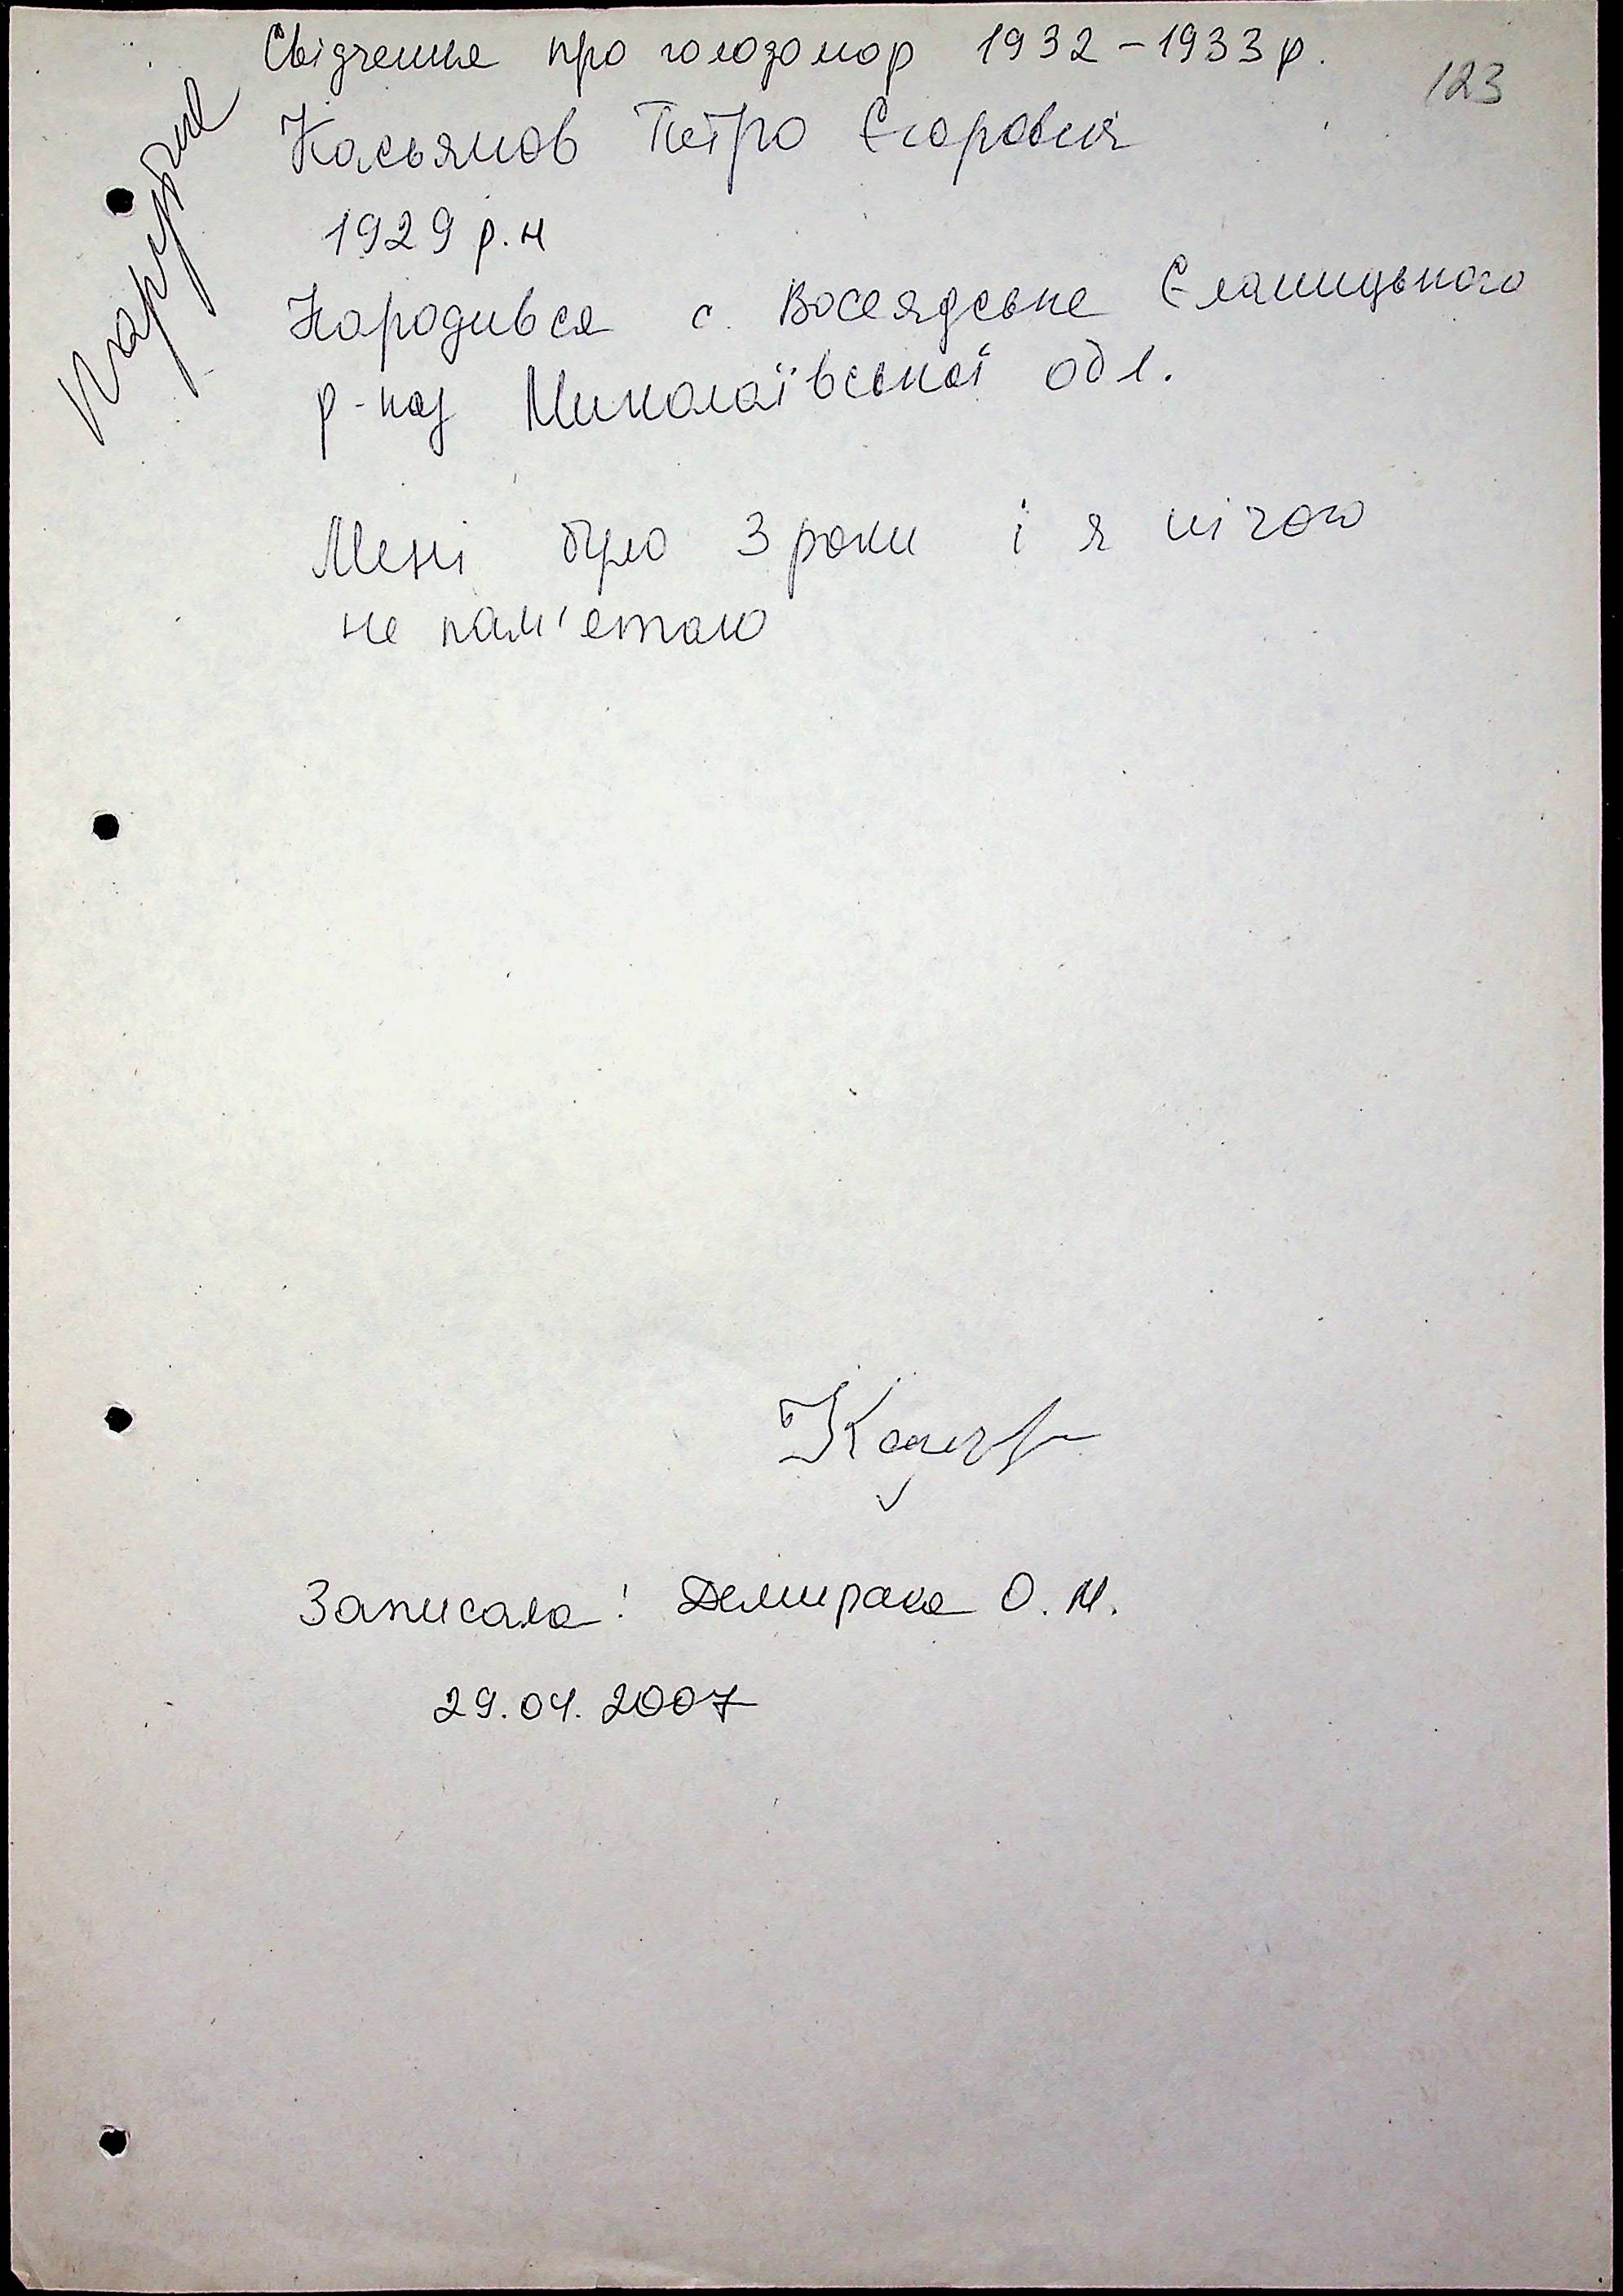 Свідчення про голодомор 1932-1933 р.
123
Касьянов Петро Єгорович
1929 р.н
Народився с. Восеядське Єланицького
р-ну Миколаївської обл.
Мені було 3 роки і я нічого
не пам'етаю
Записала: О. М.
29.04.2007